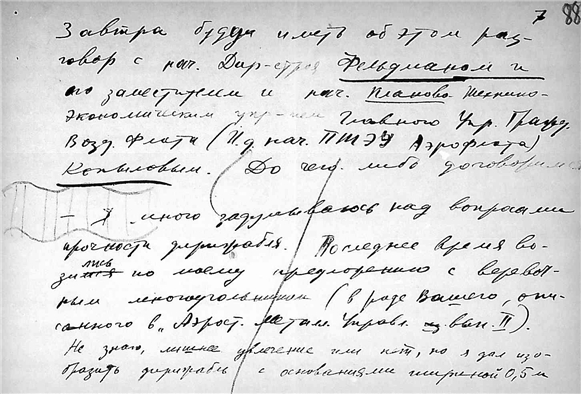 7 88
Завтра буду иметь об этом раз-
говор с нач. Дир-строя Фельдманом и
его заместителем и нач. планово-технико-
экономическим упр-нием Главного Упр. Гражд.
Возд. Флота (И.д. нач. ПТЭУ Аэрофлота)
Копыловым. До чего либо договоримся
— Я много задумываюсь над вопросами
прочности дирижабля. Последнее время во-
зились по моему предложению с веревоч-
ным многоугольником (в роде Вашего, опи-
санного в „Аэрост. Метал. Управл. вып. II).
Не знаю, лишнее увлечение или нет, но я дал изо-
бразить дирижабль с основаниями шириной 0,5 м